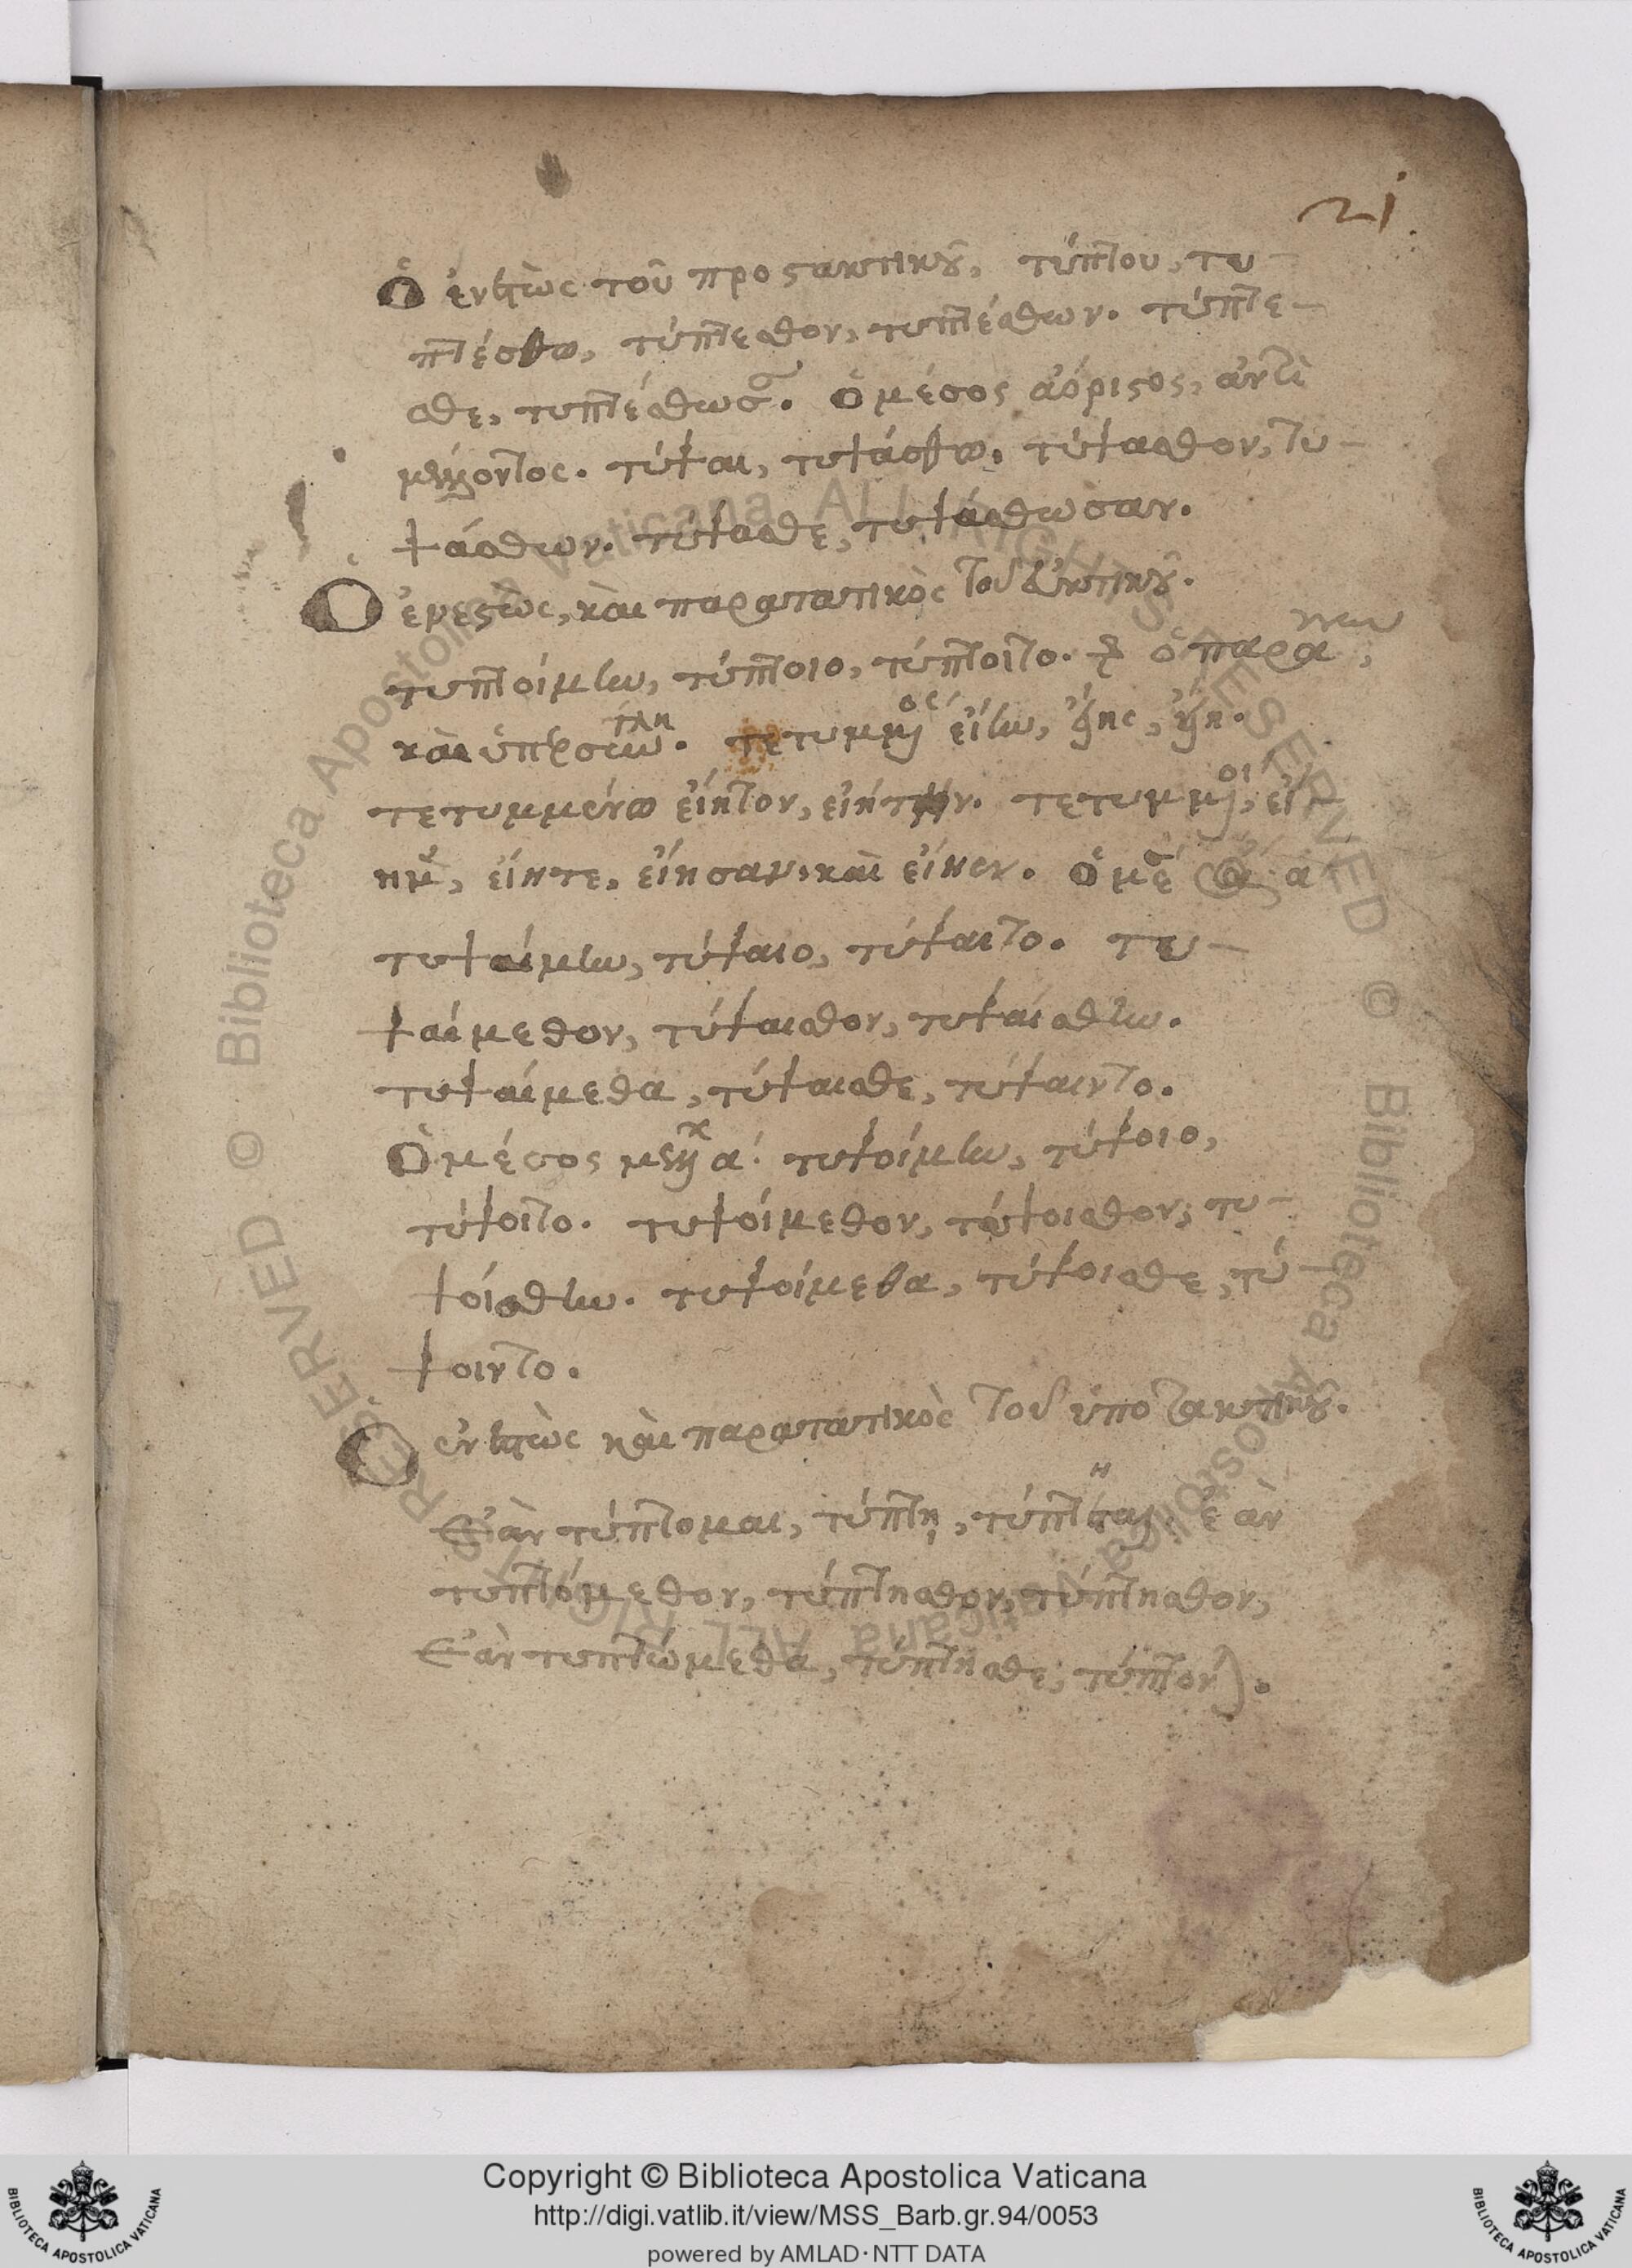 21
Ὁ ἐνεστὼς τοῦ προστακτικοῦ, τύπτου, τυ-
πτέσθω, τύπτεσθον, τυπτέσθων. τύπτε-
σθε, τυπτέσθωσαν. Ὁ μέσος ἀόριστος, ἀντὶ
μέλλοντος. τύψαι, τυψάσθω, τύψασθον, τυ-
ψάσθων. τύψασθε, τυψάσθωσαν.
Ὁ ἐνεστὼς, καὶ παρατατικὸς τοῦ εὐκτικοῦ.
τυπτοίμην, τύπτοιο, τύπτοιτο. ὁ παρακείμενος,
καὶ ὑπερσυντέλικος. τετυμμένος εἴην, εἴης, εἴη.
τετυμμένω εἴητον, εἰήτην. τετυμμένοι, εἴ-
ημεν, εἴητε, εἴησαν, καὶ εἶεν. ὁ μέσος α
τυψαίμην, τύψαιο, τύψαιτο. τυ-
ψαίμεθον, τύψαισθον, τυψαίσθην.
τυψαίμεθα, τύψαισθε, τύψαιντο.
Ὁ μέσος μέλλων α. τυψοίμην, τύψοιο,
τύψοιτο. τυψοίμεθον, τύψοισθον, τυ-
ψοίσθην. τυψοίμεθα, τύψοισθε, τύ-
ψοιντο.
Ὁ ἐνεστὼς καὶ παρατατικὸς τοῦ ὑποτακτικοῦ.
Ἐὰν τύπτομαι, τύπτῃ, τύπτηται. ἐὰν
τυπτόμεθον, τύπτησθον, τύπτησθον,
Ἐὰν τυπτώμεθα, τύπτησθε, τύπτονται.
Copyright © Biblioteca Apostolica Vaticana
http://digi.vatlib.it/view/MSS_Barb.gr.94/0053
powered by AMLAD·NTT DATA
BIBLIOTECA APOSTOLICA VATICANA
BIBLIOTECA APOSTOLICA VATICANA